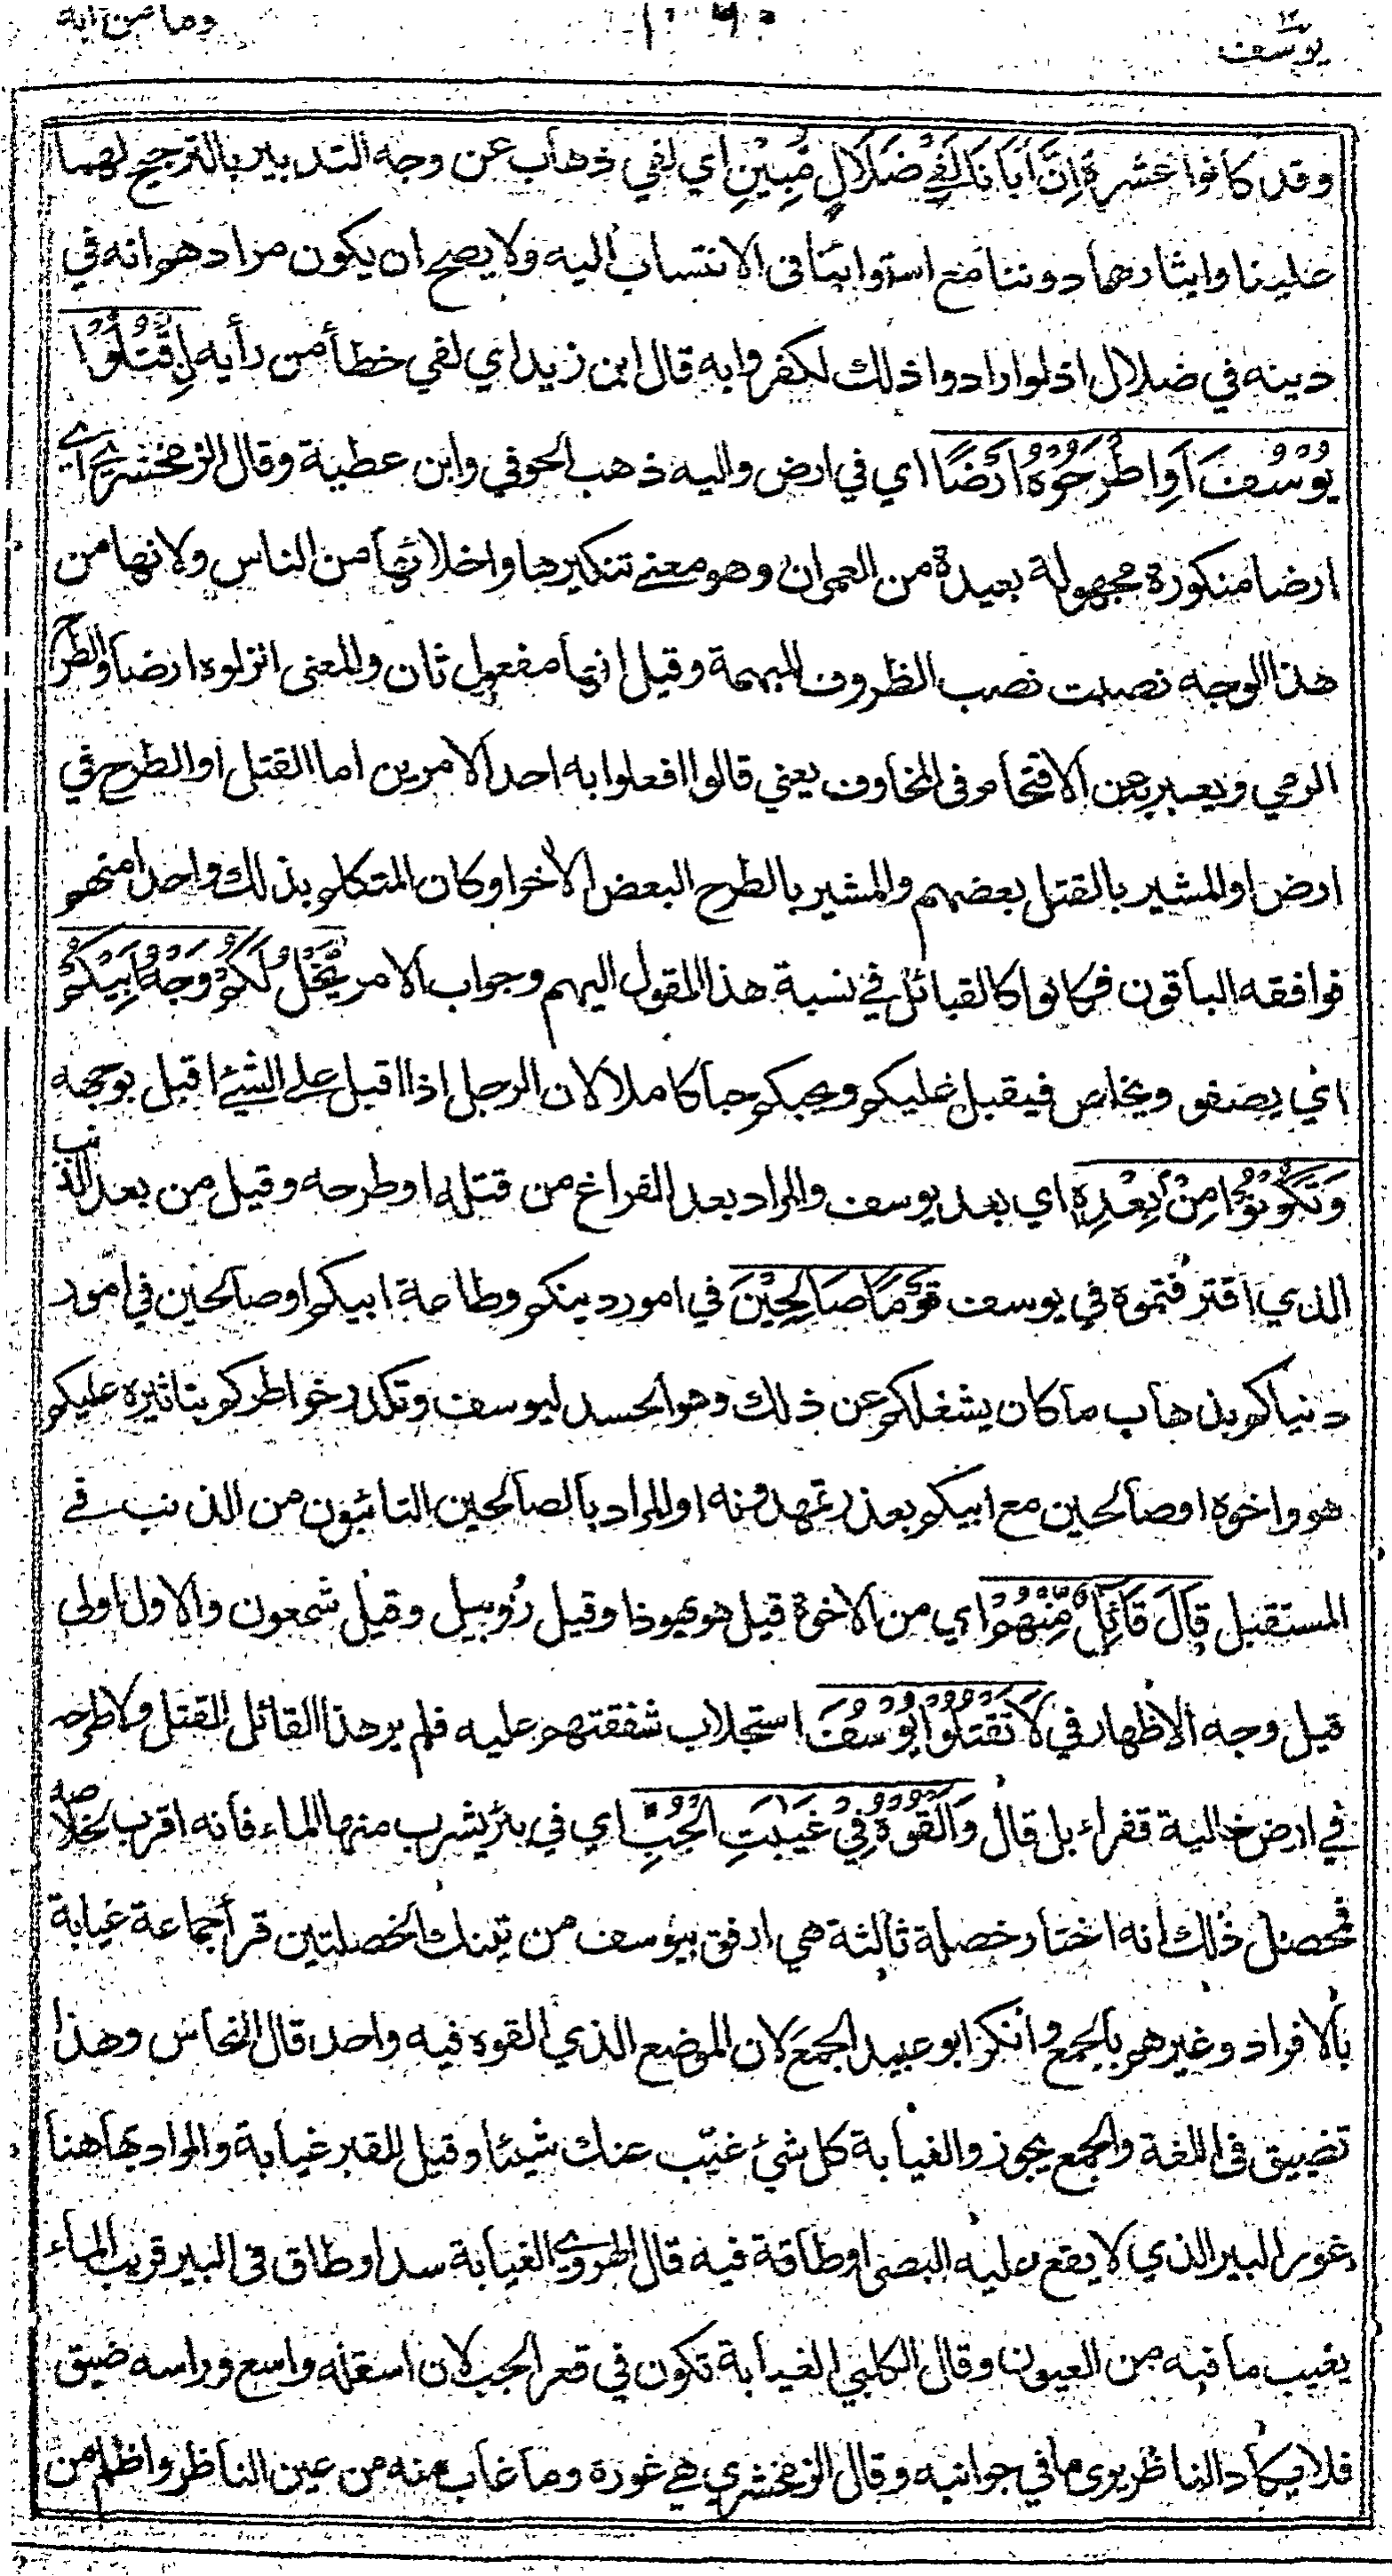 يوسف ١٢
وما من دابة
وقد كانوا عشرة إِنَّ أَبَانَا لَفِي ضَلَالٍ مُّبِيْنٍ اي لفي ذهاب عن وجه التدبير بالترجيح لهما
علينا وايثارهما دوننا مع استوائنا في الانتساب اليه ولا يصح ان يكون مرادهم انه في
دينه في ضلال اذ لو ارادوا ذلك لكفروا به قال ابن زيد اي لفي خطأ من رأيه اِقْتُلُوْا
يُوْسُفَ اَوِ اطْرَحُوْهُ اَرْضًا اي في ارض واليه ذهب الحوفي وابن عطية وقال الزمخشري اي
ارضا منكورة مجهولة بعيدة من العمران وهو معنى تنكيرها واخلائها من الناس ولانها من
هذا الوجه نصبت نصب الظروف المبهمة وقيل انها مفعول ثان والمعنى انزلوه ارضا والطرح
الرمي ويعبر به عن الاقتحام في المخاوف يعني قالوا افعلوا به احد الامرين اما القتل او الطرح في
ارض او المشير بالقتل بعضهم والمشير بالطرح البعض الأخر او كان المتكلم بذلك واحدا منهم
فوافقه الباقون فكانوا كالقبائل في نسبة هذا المقول اليهم وجواب الامر يَخْلُ لَكُمْ وَجْهُ اَبِيْكُمْ
اي يصفو ويخلص فيقبل عليكم ويحبكم حبا كاملا لان الرجل اذا اقبل على الشيئ اقبل بوجهه
وَتَكُوْنُوْا مِنْ بَعْدِهٖ اي بعد يوسف والمراد بعد الفراغ من قتله او طرحه وقيل من بعد الذنب
الذي اقترفتموه في يوسف قَوْمًا صَالِحِيْنَ في امور دينكم وطاعة ابيكم او صالحين في امور
دنياكم بذهاب ما كان يشغلكم عن ذلك وهو الحسد ليوسف وتكدر خواطركم بتاثيره عليكم
هو واخوه او صالحين مع ابيكم بعذر تمهدونه او المراد بالصالحين التائبون من الذنب في
المستقبل قَالَ قَائِلٌ مِّنْهُمْ اي من الاخوة قيل هو يهوذا وقيل رُوبيل وقيل شمعون والاول اولى
قيل وجه الاظهار في لَا تَقْتُلُوْا يُوْسُفَ استجلاب شفقتهم عليه فلم ير هذا القائل القتل ولا طرحه
في ارض خالية قفراء بل قال وَاَلْقُوْهُ فِيْ غَيٰبَتِ الْجُبِّ اي في بئر يشرب منها الماء فانه اقرب لخلاصه
فحصل ذلك انه اختار خصلة ثالثة هي ارفق بيوسف من تينك الخصلتين قرأ جماعة غيابة
بالافراد وغيرهم بالجمع وانكر ابو عبيد الجمع لان الموضع الذي القوه فيه واحد قال النحاس وهذا
تضييق في اللغة والجمع يجوز والغيابة كل شيئ غيّب عنك شيئا وقيل للقبر غيابة والمراد بها هنا
غور البير الذي لا يقع عليه البصر او طاقة فيه قال الهروي الغيابة سد او طاق في البير قريب الماء
يغيب ما فيه من العيون وقال الكلبي الغيابة تكون في قعر الجب لان اسفله واسع وراسه ضيق
فلا يكاد الناظر يرى ما في جوانبه وقال الزمخشري هي غوره وما غاب منه من عين الناظر واظلم من